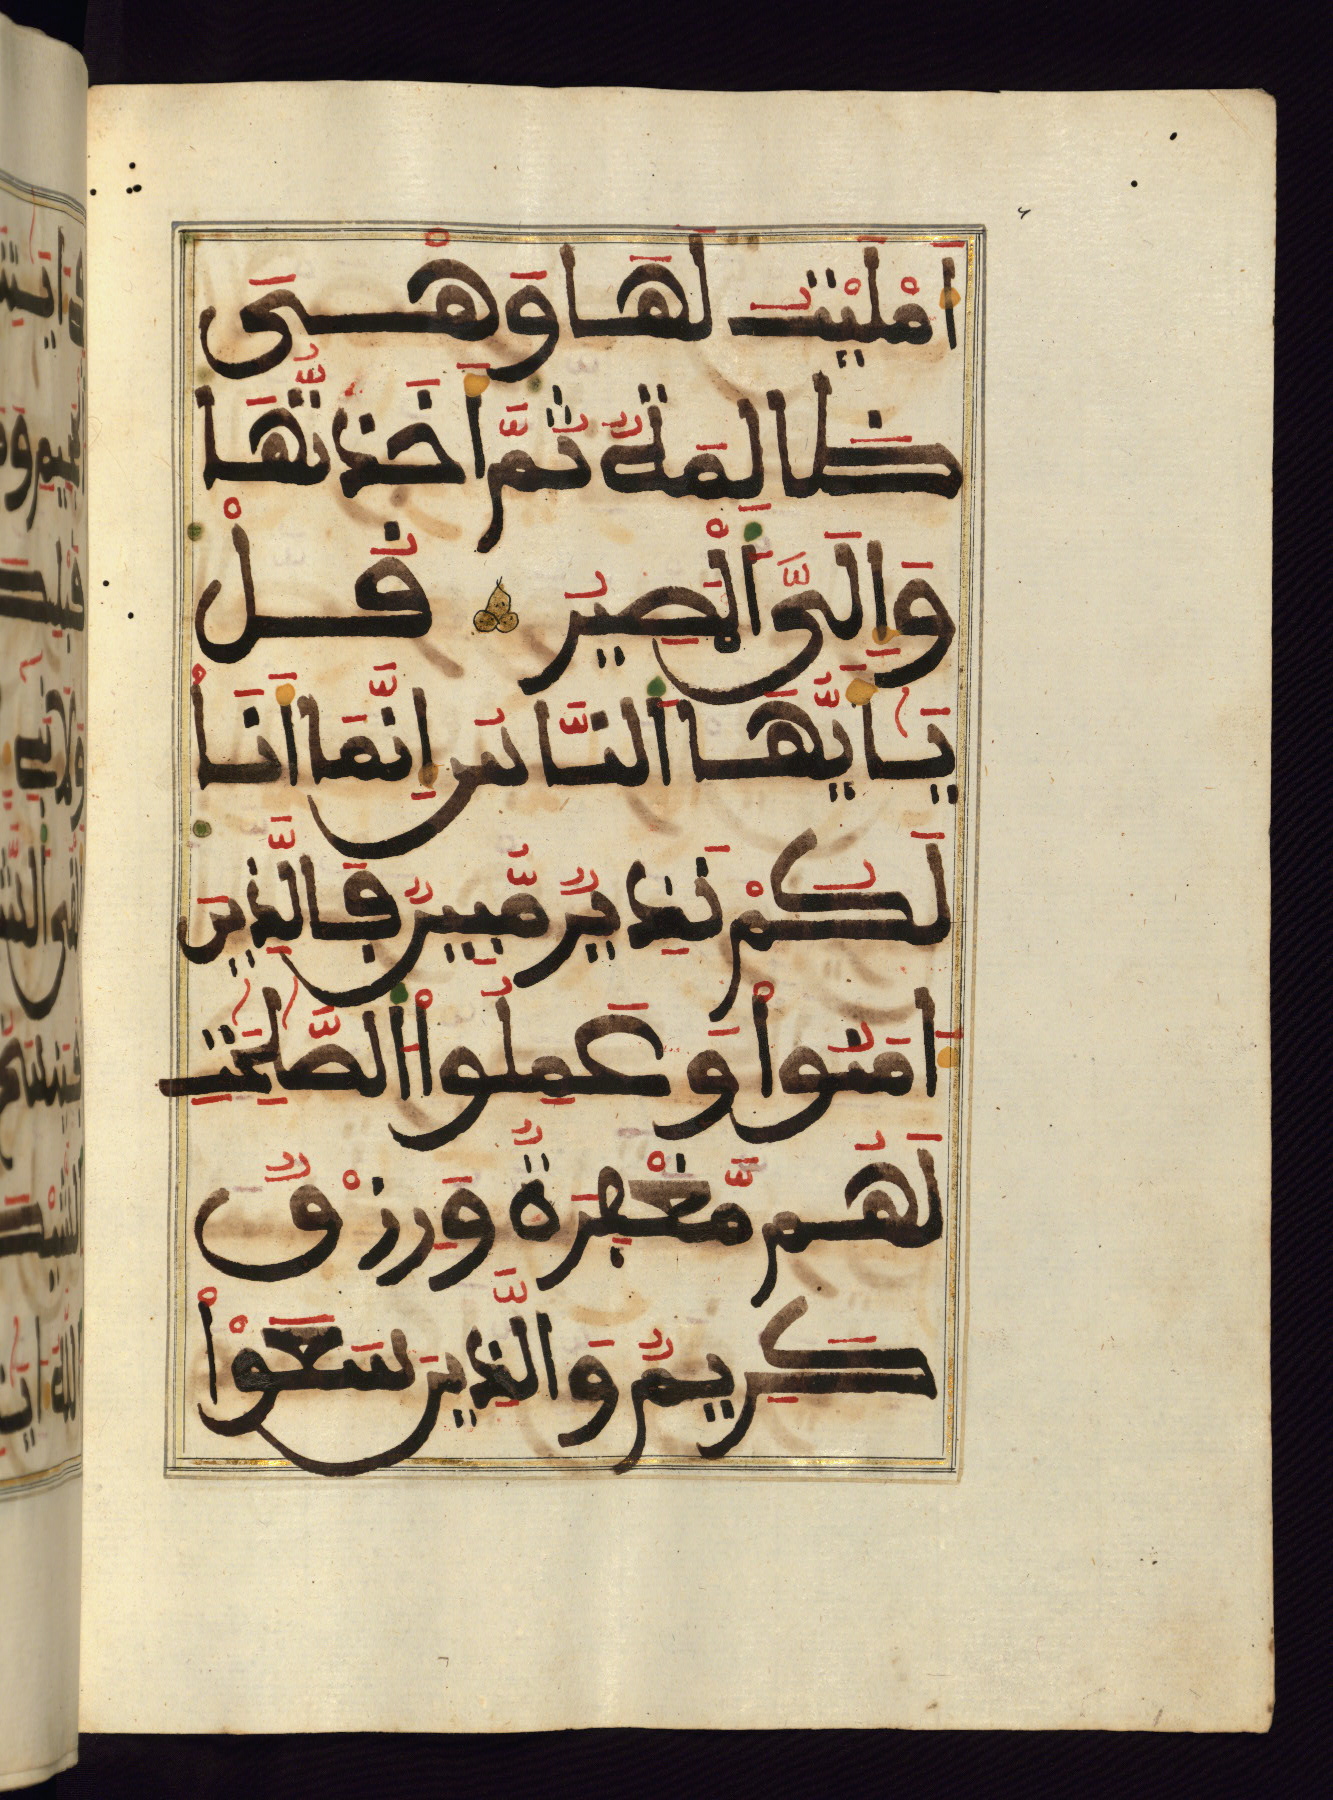 اَمْلَيْتُ لَهَا وَهْىَ
ظَالِمَةٌ ثُمَّ أَخَذتُّهَا
وَإِلَىَّ اَلْمَصِيرُ قُلْ
يَٰأَيُّهَا اَلنَّاسُ إِنَّمَا أَنَاْ
لَكُمْ نَذِيرٌ مُّبِينٌ فَالَّذِينَ
ءَامَنُواْ وَعَمِلُواْ الصَّٰلِحَٰتِ
لَهُم مَّغْفِرَةٌ وَرِزْقٌ
كَرِيمٌ وَالَّذِينَ سَعَوْاْ